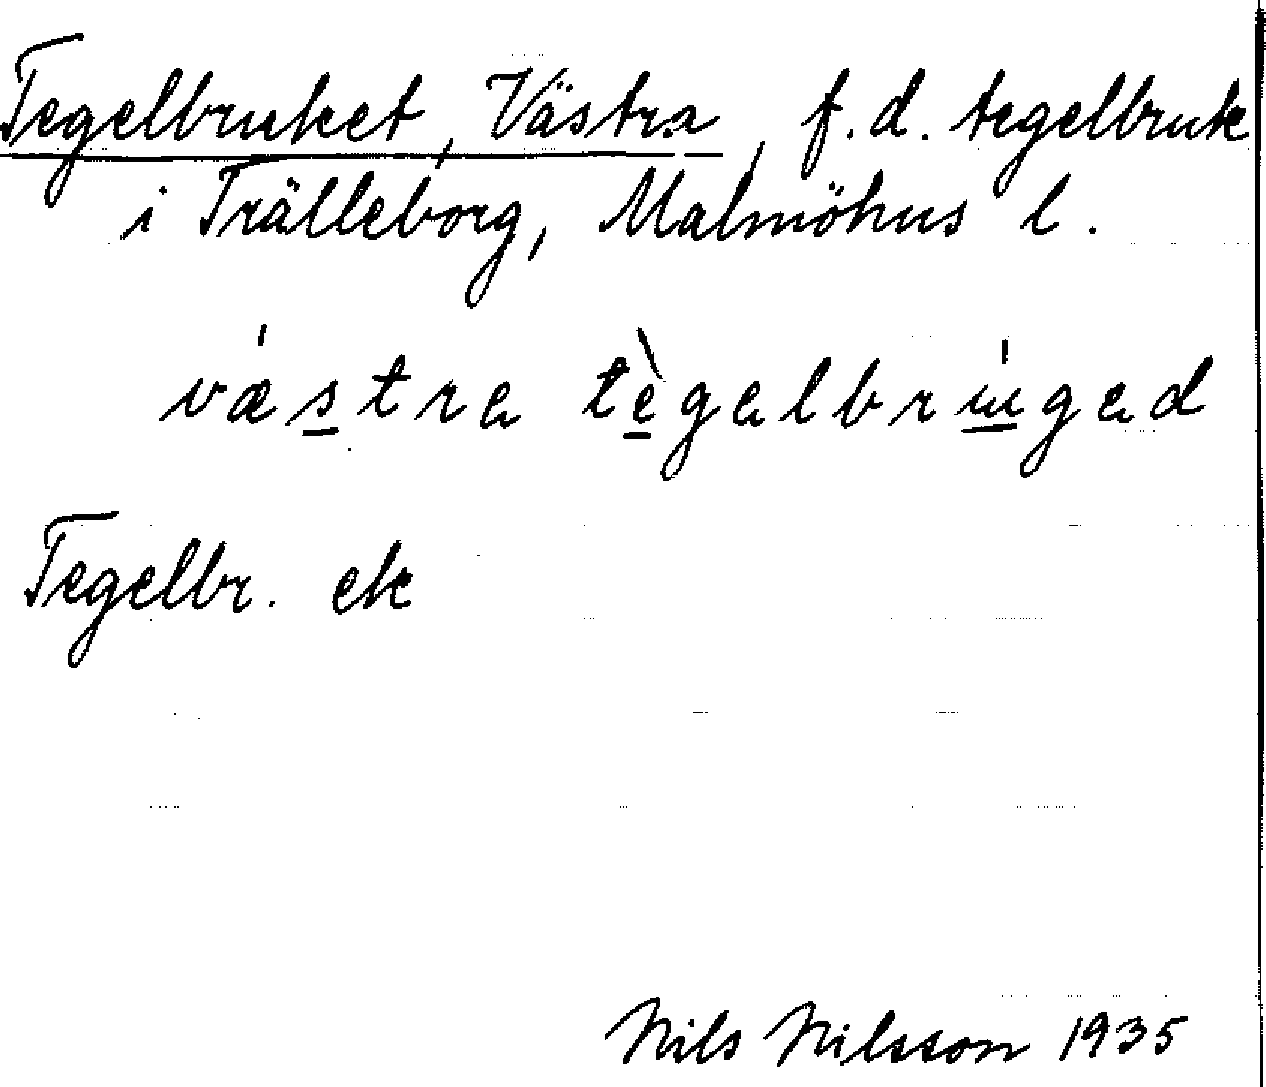 Tegelbruket, Västra, f.d. tegelbruk
i Trälleborg, Malmöhus l.
væstra tègalbrɯgad
Tegelbr. ek
Nils Nilsson 1935